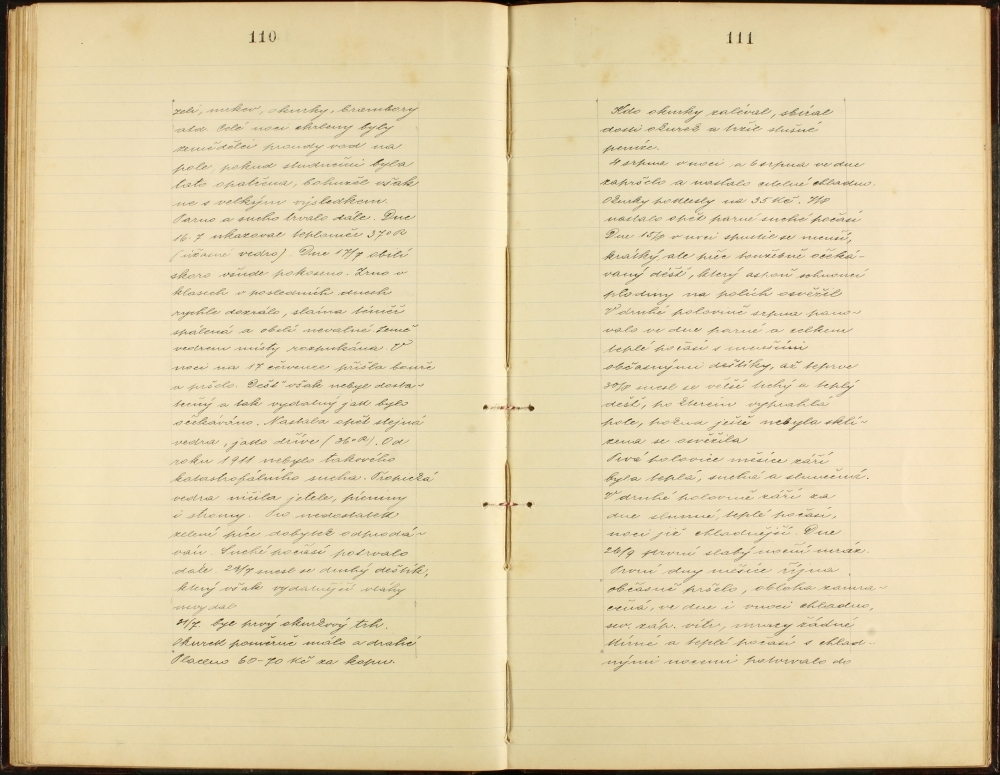 110
zelí, mrkev, okurky, brambory
atd. Celé noci chrleny byly
zemědělci proudy vod na
pole, pokud studněmi byla
tato opatřena, bohužel však
ne s velkým výsledkem.
Parno a sucho trvalo dále. Dne
16.7 ukazoval teploměr 37°R
(úžasné vedro). Dne 17/7 obilí
skoro všude pokoseno. Zrno v
klasech v posledních dnech
rychle dozrálo, sláma téměř
spálená a obilí nevalné země
vedrem místy rozpukána V
noci na 18 července přišla bouře
a pršelo. Déšť však nebyl dosta-
tečný a tak vydatný jak bylo
očekáváno. Nastala opět stejná
vedra, jako dříve (36°R). Od
roku 1911 nebylo takového
katastrofálního sucha. Tropická
vedra ničila jetele, pícniny
i stromy. Pro nedostatek
zelení píce dobytek odprodá-
ván. Suché počasí potrvalo
dále. 24/7 snesl se druhý deštík,
který však vydatnější vláhy
nevydal
31/7 byl prvý okurkový trh.
Okurek poměrně málo a drahé
Placeno 60-70 Kč za kopu.
111
Kdo okurky zaléval, sbíral
dosti okurek a tržil slušné
peníze.
4 srpna v noci a 6 srpna ve dne
zapršelo a nastalo zdelné chladno.
Okurky poklesly na 35 Kč. 7/8
nastalo opět parné suché počasí
Dne 15/8 v noci spustil se menší,
krátký, ale přec toužebně očeká-
vaný déšť, který aspoň schnoucí
plodiny na polích osvěžil
V druhé polovině srpna pano-
valo ve dne parné a celkem
teplé počasí s menšími
občasnými deštíky, až teprve
30/8 snesl se větší tichý a teplý
déšť, po kterém vyprahlá
pole, pokud ještě nebyla skli-
zena se osvěžila
Prvá polovice měsíce září
byla teplá, suchá a slunečná.
V druhé polovině září za
dne slunné, teplé počasí,
noci již chladnější. Dne
24/9 první slabý noční mráz.
První dny měsíce října
občasně pršelo, obloha zamra-
čená, ve dne i v noci chladno,
sev. záp. vítr, mrazy žádné
Mírné a teplé počasí s chlad
nými nocemi potrvalo do